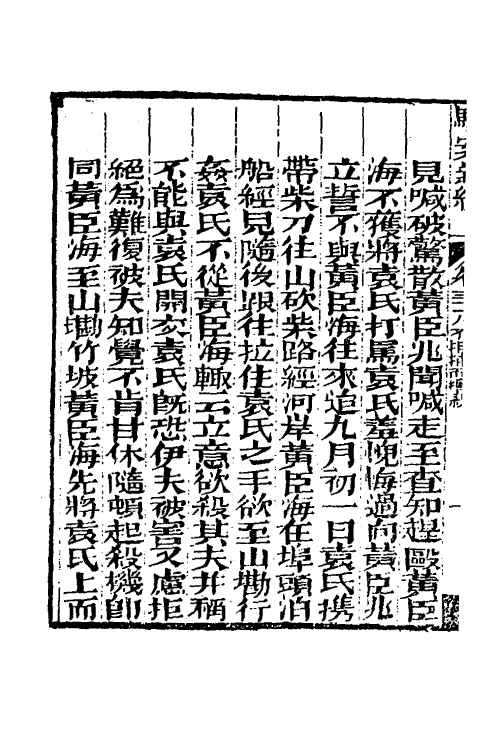 見喊破驚散黃臣兆聞喊走至查知趕毆黃臣
海不獲將袁氏打罵袁氏羞愧悔過向黃臣兆
立誓不與黃臣海往來迨九月初一日袁氏携
帶柴刀往山砍柴路經河岸黃臣海在埠頭泊
船經見隨後跟往拉住袁氏之手欲至山磡行
姦袁氏不從黃臣海輙云立意欲殺其夫并稱
不能與袁氏開交袁氏旣恐伊夫被害又慮拒
絕爲難復被夫知覺不肯甘休隨頓起殺機卽
同黃臣海至山磡竹坡黃臣海先將袁氏上而